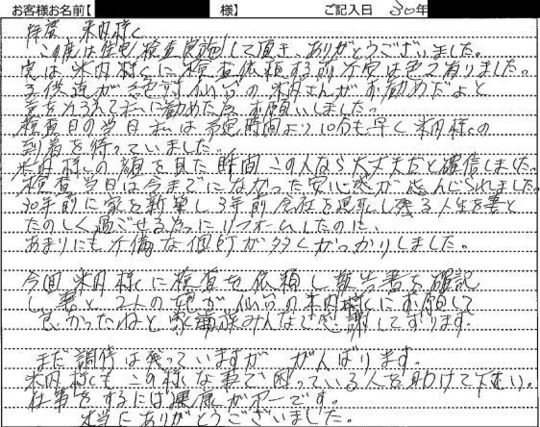 お客様お名前【 様】 ご記入日 30年
拝啓 米内様へ
この度は住宅検査実施して頂き、ありがとうございました。
実は米内様に検査依頼する前不安は色々有りました。
子供達が絶対仙台の米内さんがお勧めだよと
言をそろえて私に勧めた反お願いしました。
検査日の当日私は予定時間より10分も早く米内様の
到着を待っていました。
米内様の顔を見た瞬間この人なら大丈夫だと確信しました。
検査当日は今までになかった安心感が感んじられました
30年前に家を新築し3年前会社を退職し残る人生を妻と
たのしく過ごせる為にリフォームしたのに、
あまりにも不備な個所が多くがっかりしました。
今回米内様に検査を依頼し報告書を確認
し妻と2人の娘が仙台の米内様にお願して
良かったねと家族みんなで感謝しております。
まだ調停は残っていますが がんばります。
米内様もこの様な事で困っている人を助けて下さい。
仕事をするには健康が第一です。
本当にありがとうございました。